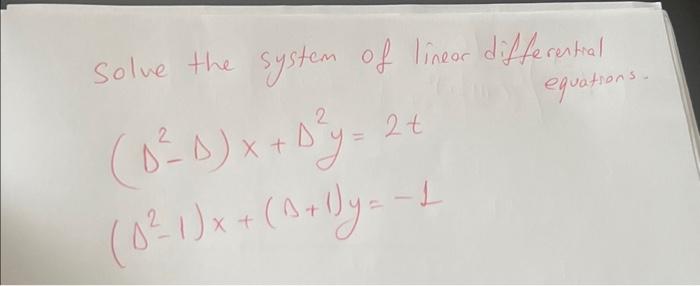 Solve the system of linear differential
equations.
(D²-D)x+D²y= 2t
(D²-1)x+(D+1)y=-1